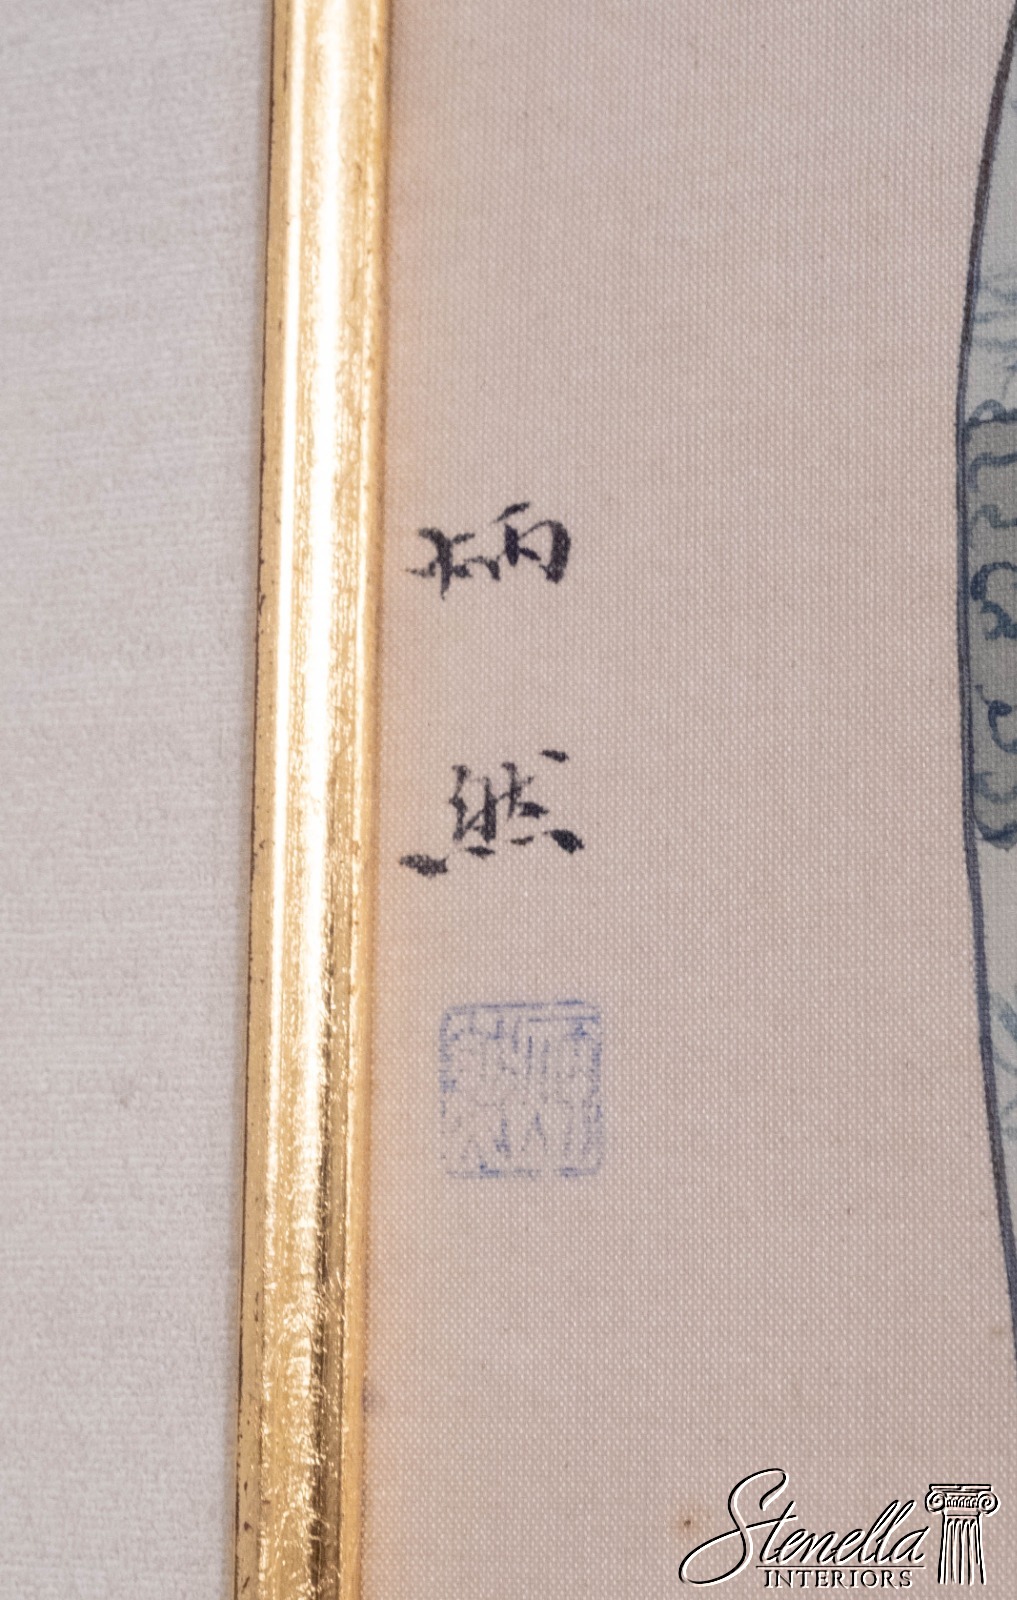 炳
然
Stenella
INTERIORS